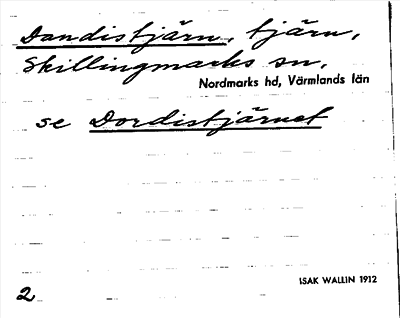 Dandistjärn, tjärn,
Skillingmarks sn,
Nordmarks hd, Värmlands län
se Dordistjärnet
ISAK WALLIN 1912
2